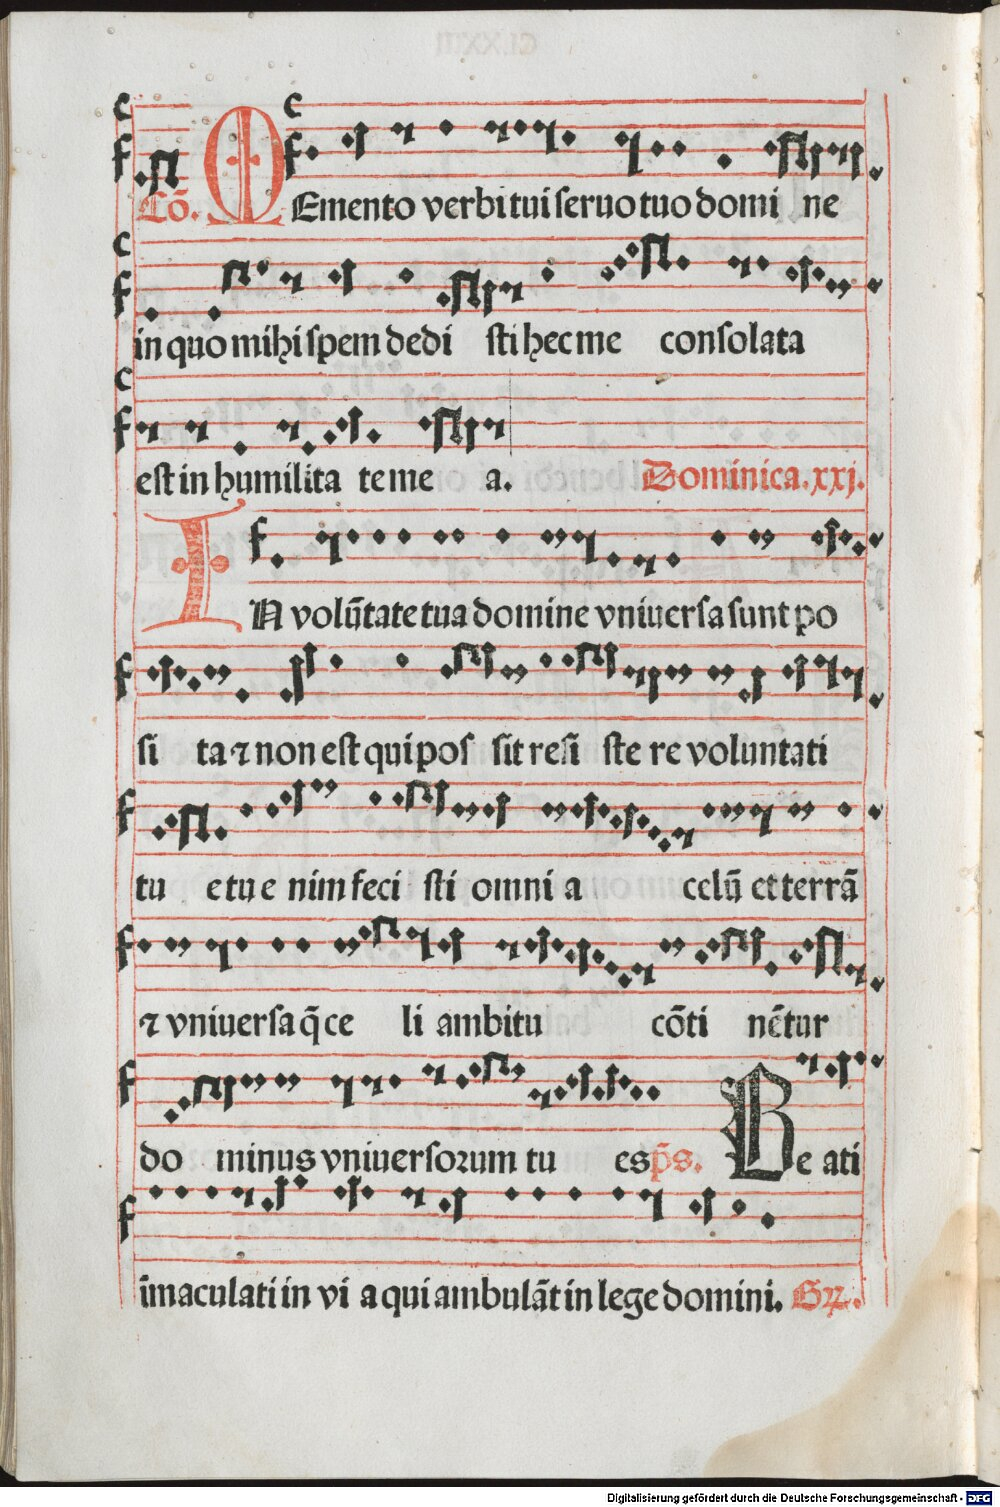 Cō. MEmento verbi tui seruo tuo domi ne
in quo mihi spem dedi sti hec me consolata
est in humilita te me a. Dominica. xxj.
IN volūtate tua domine vniuersa sunt po
si ta ⁊ non est qui pos sit resi ste re voluntati
tu e tu e nim feci sti omni a celū et terrā
⁊ vniuersa q̄ ce li ambitu cōti nētur
do minus vniuersoꝛum tu es p̄s. Be ati
īmaculati in vi a qui ambulāt in lege domini.
Digitalisierung gefördert durch die Deutsche Forschungsgemeinschaft - DFG